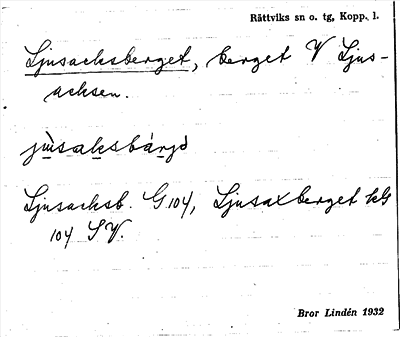 Rättviks sn o. tg, Kopp. l.
Ljusacksberget, berget V Ljus-
acksen.
jùsaksbárjə
Ljusacksb. G 104, Ljusaxberget
104 SV.
Bror Lindén 1932